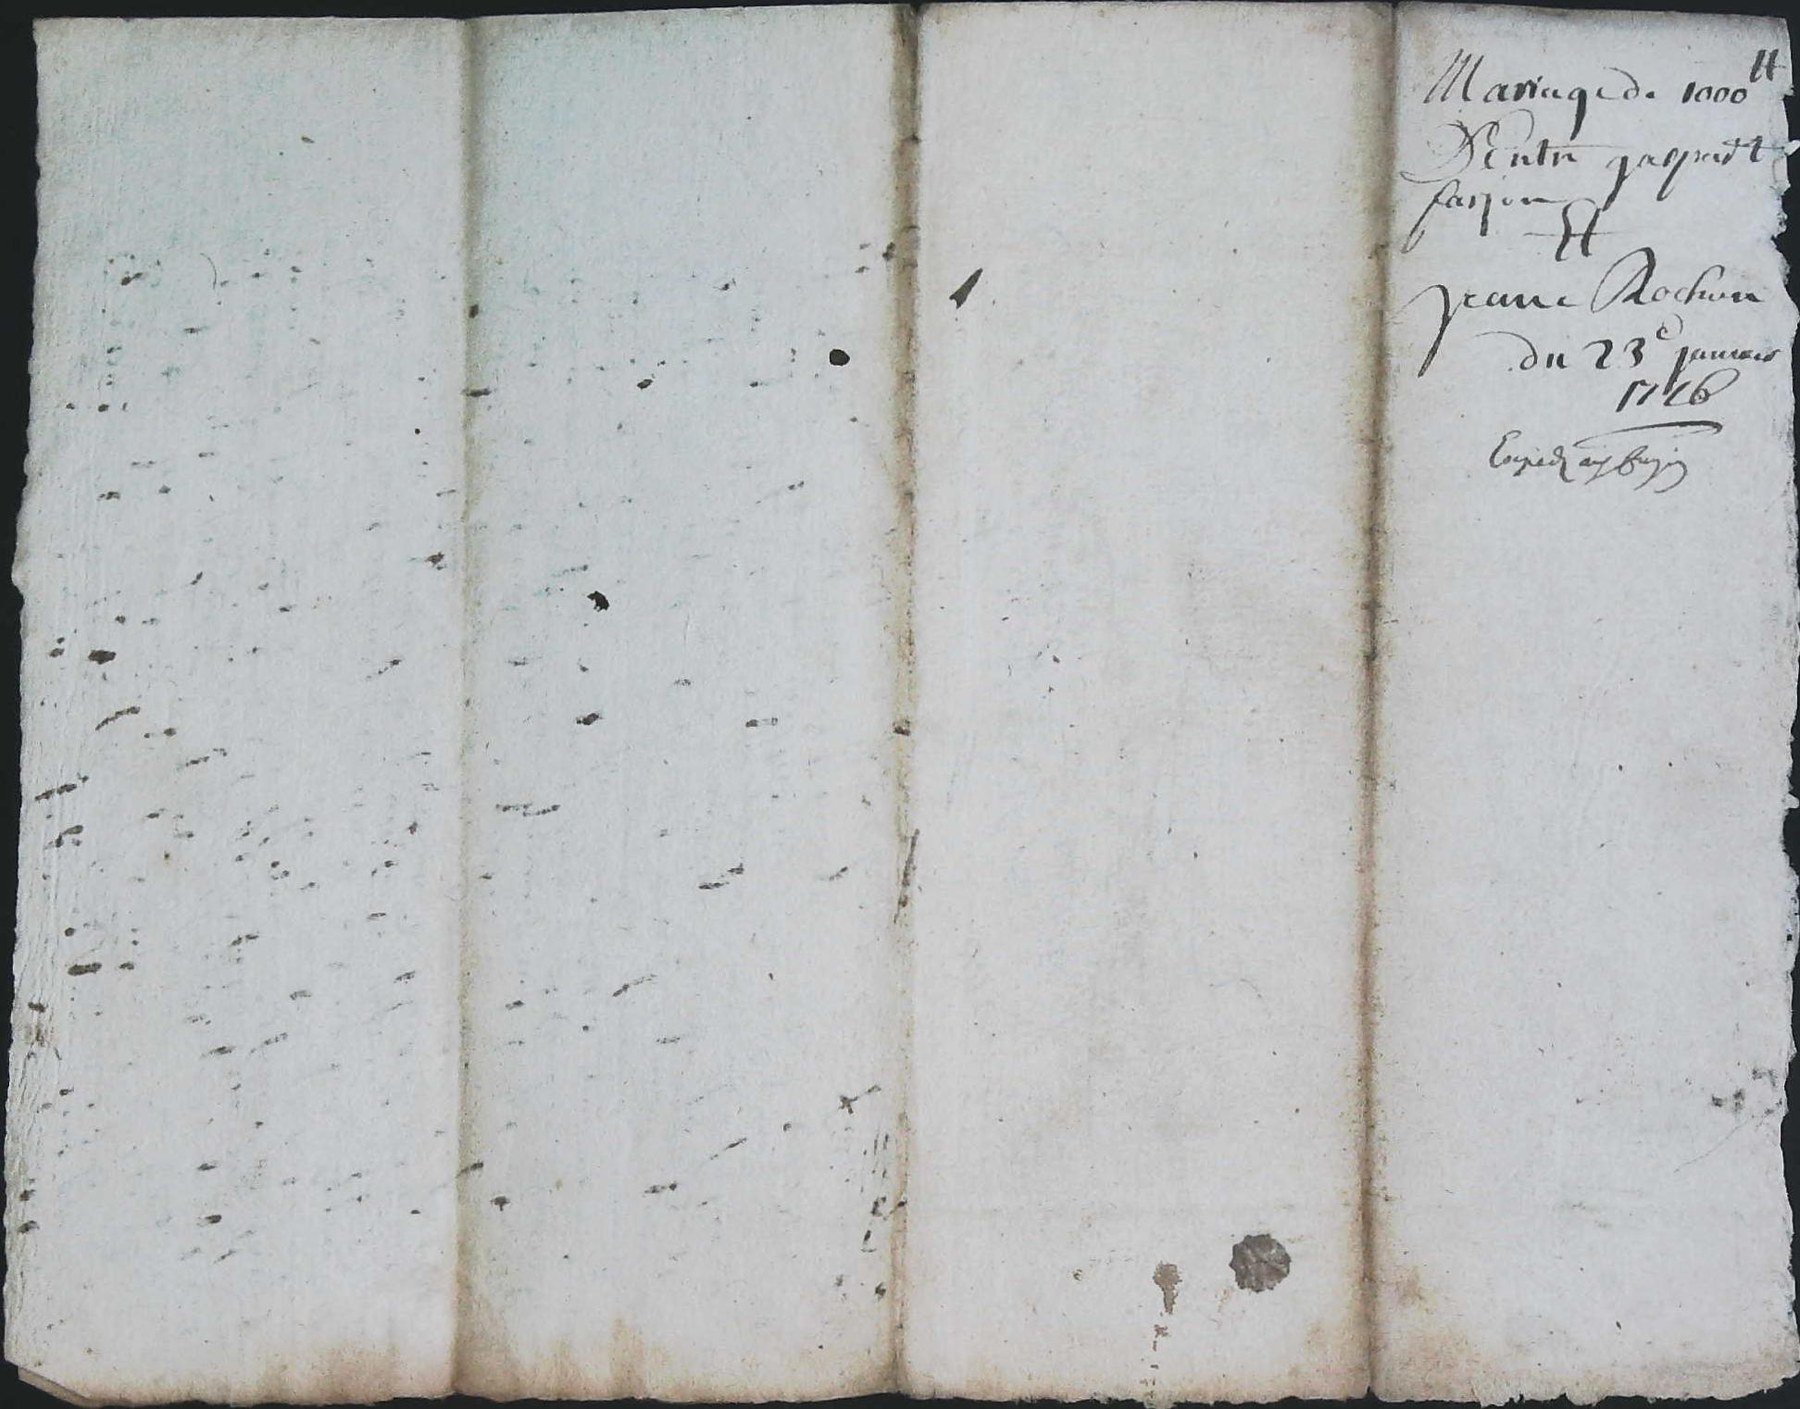 Mariage de 1000 ₶
D'Entre gaspard
farjon
Et
jeane Rochon
du 23e janvier
1716